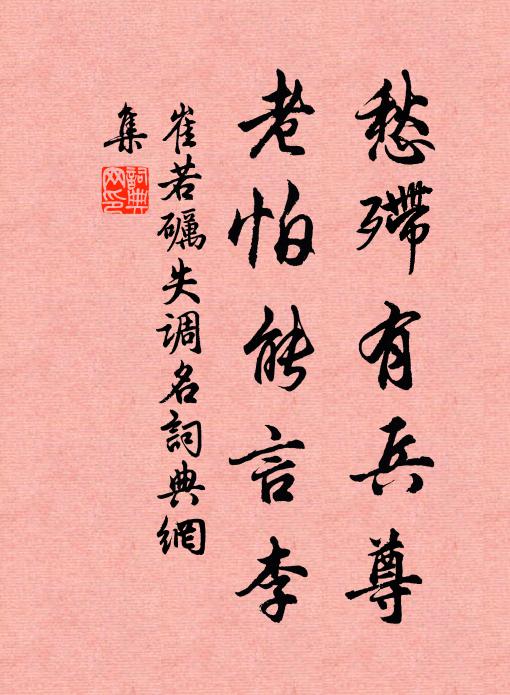 愁殢有兵尊
老怕能言李
崔若礪失调名詞典網
集
詞典网印